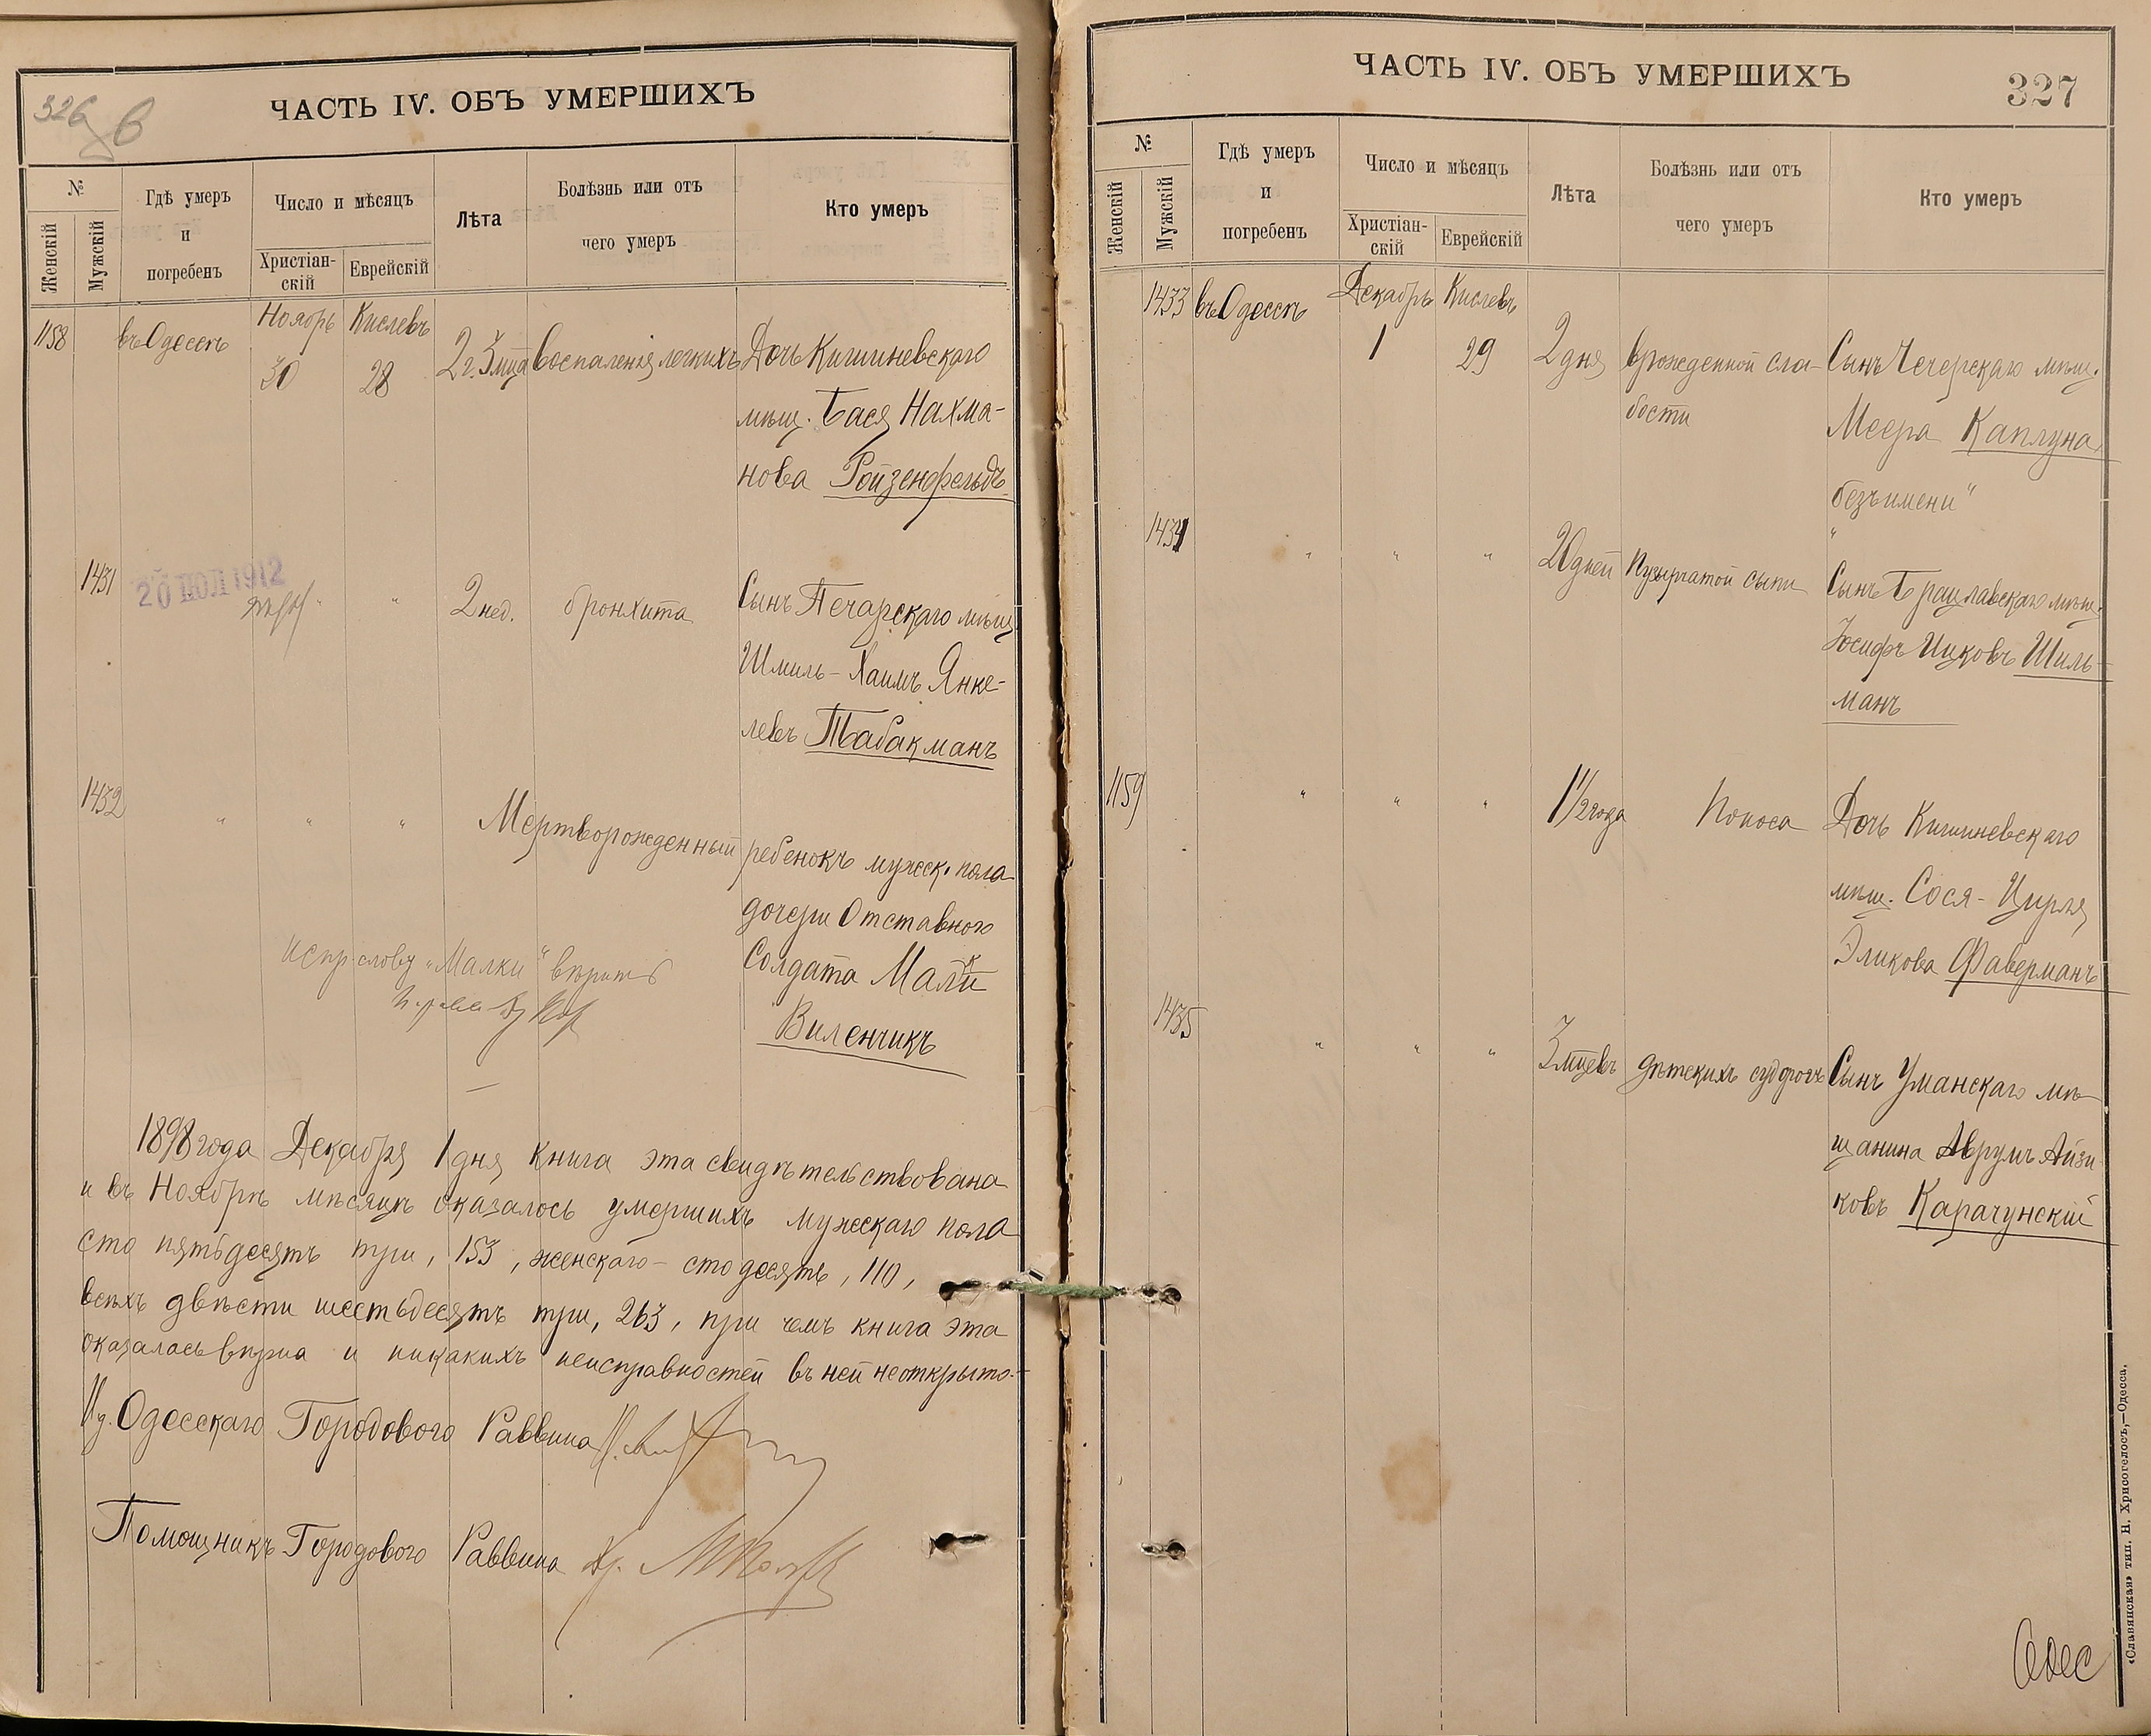 326
в
ЧАСТЬ IV. ОБЪ УМЕРШИХЪ
№
Женскій
Мужскій
Гдѣ умеръ
и
погребенъ
Число и мѣсяцъ
Христіан-
скій
Еврейскій
Лѣта
Болѣзнь или отъ
чего умеръ
Кто умеръ
1158
въ Одессѣ
Ноябрь
30
Кислевъ
28
2 г. 3 мца
воспаленія легкихъ
Дочь Кишиневскаго
мѣщ. Бася Нахма-
нова Ройзенфельдъ
1431
20 ІЮЛ 1912
" "
2 нед.
бронхита
Сынъ Печарскаго мѣщ.
Шмиль-Хаимъ Янке-
левъ Табакманъ
1432
" " "
Мертворожденный ребенокъ мужеск. пола
дочери Отставного
Солдата Малки
Виленчикъ
испр. слову "Малки" вѣрить
1898 года Декабря 1 дня книга эта свидѣтельствована
и въ Ноябрѣ мѣсяцѣ оказалось умершихъ мужескаго пола
сто пятьдесятъ три, 153, женскаго - сто десять, 110,
всѣхъ двѣсти шестьдесятъ три, 263, при чемъ книга эта
оказалась вѣрна и никакихъ неисправностей въ ней не открыто.-
И д. Одесскаго Городового Раввина
Помощникъ Городового Раввина
ЧАСТЬ IV. ОБЪ УМЕРШИХЪ
327
№
Женскій
Мужскій
Гдѣ умеръ
и
погребенъ
Число и мѣсяцъ
Христіан-
скій
Еврейскій
Лѣта
Болѣзнь или отъ
чего умеръ
Кто умеръ
1433
въ Одессѣ
Декабрь
1
Кислевъ
29
2 дня
врожденной сла-
бости
Сынъ Чечерскаго мѣщ.
Меера Каплуна
"безъ имени"
1434
" " "
20 дней
пузырчатой сыпи
Сынъ Брацлавскаго мѣщ.
Іосифъ Ицковъ Шиль-
манъ
1159
" " "
1 1/2 года
Поноса
Дочь Кишиневскаго
мѣщ. Сося-Цирля
Эликова Фаверманъ
1435
" " "
3 мцевъ
дѣтскихъ судорогъ
Сынъ Уманскаго мѣ-
щанина Аврумъ Айзи-
ковъ Карачунскій
Одес
«Славянская» тип. Н. Хрисогелосъ,—Одесса.